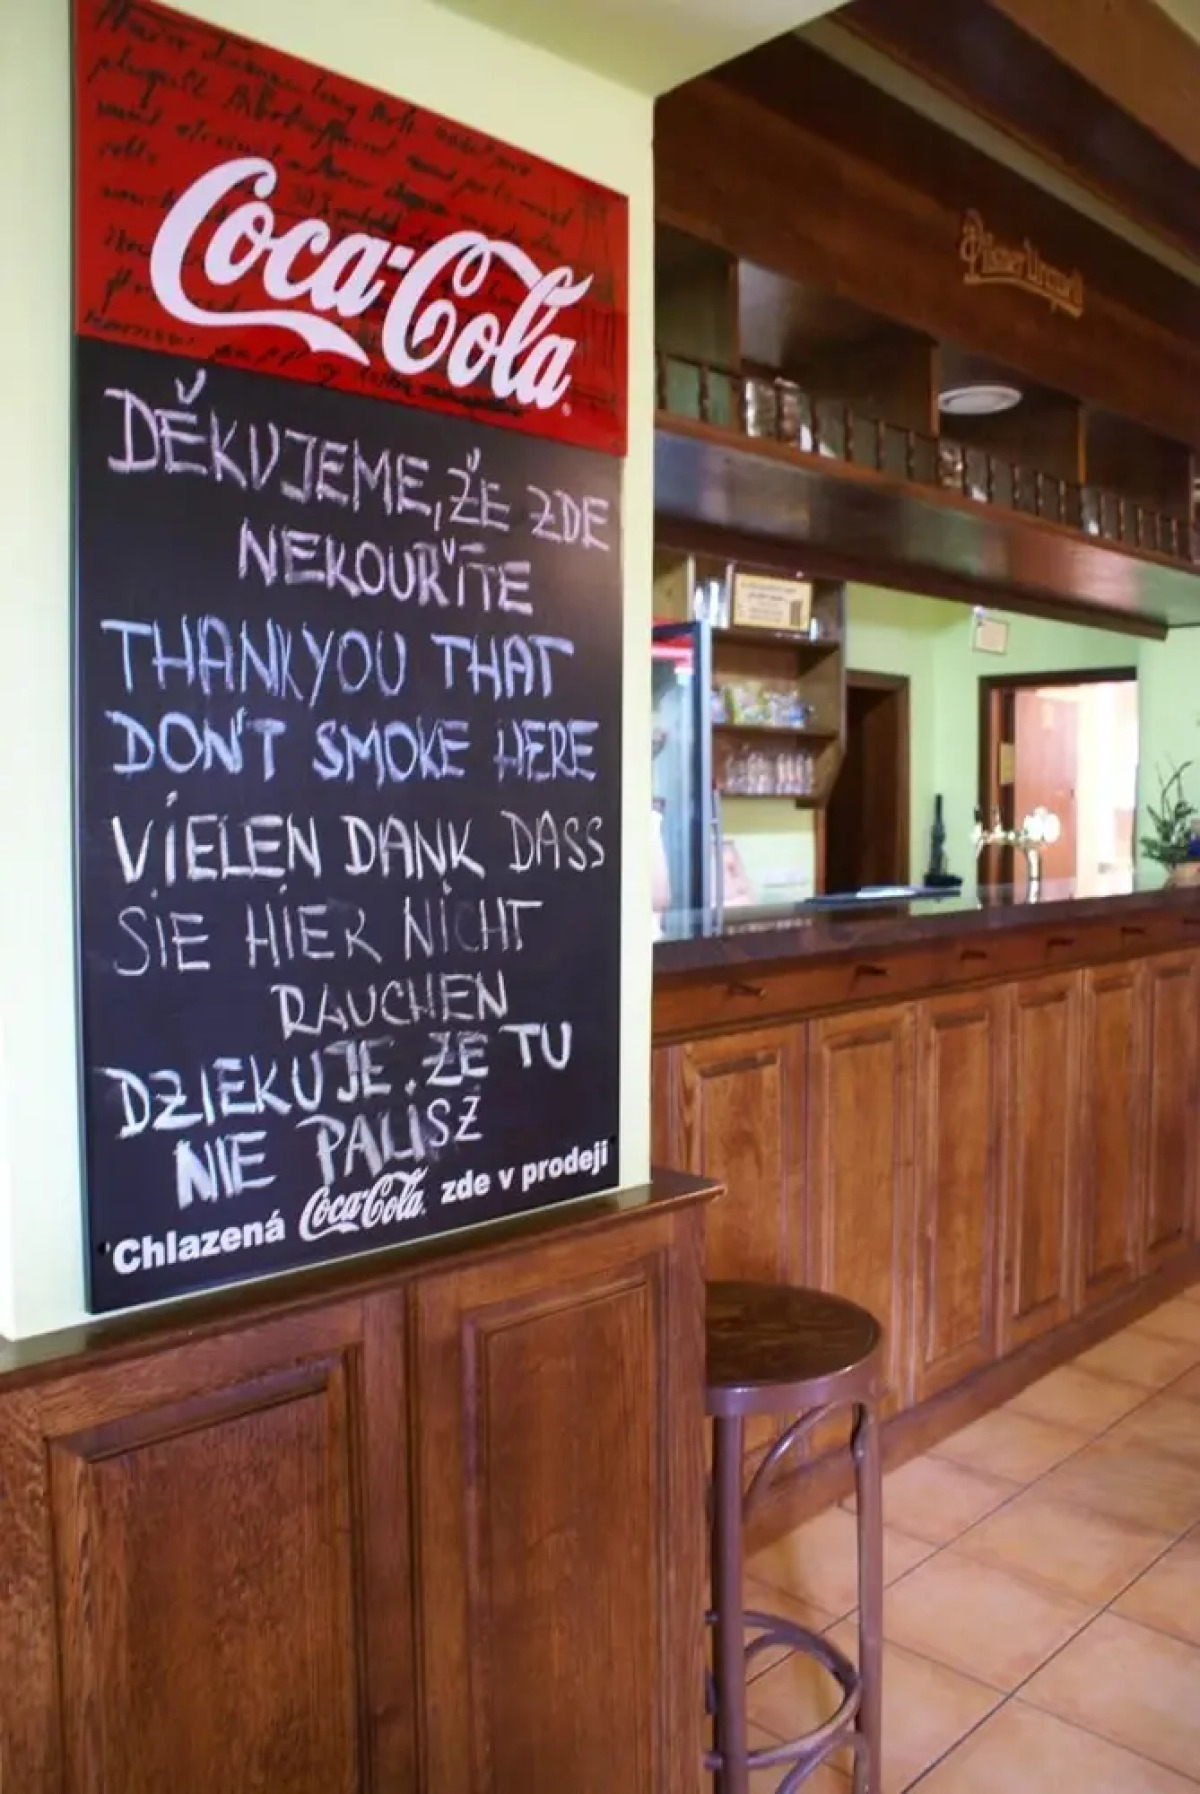 Coca-Cola
DĚKUJEME, ŽE ZDE
NEKOUŘÍTE
THANKYOU THAT
DON'T SMOKE HERE
VIELEN DANK DASS
SIE HIER NICHT
RAUCHEN
DZIEKUJE, ŻE TU
NIE PALISZ
Chlazená Coca-Cola zde v prodeji
Pilsner Urquell